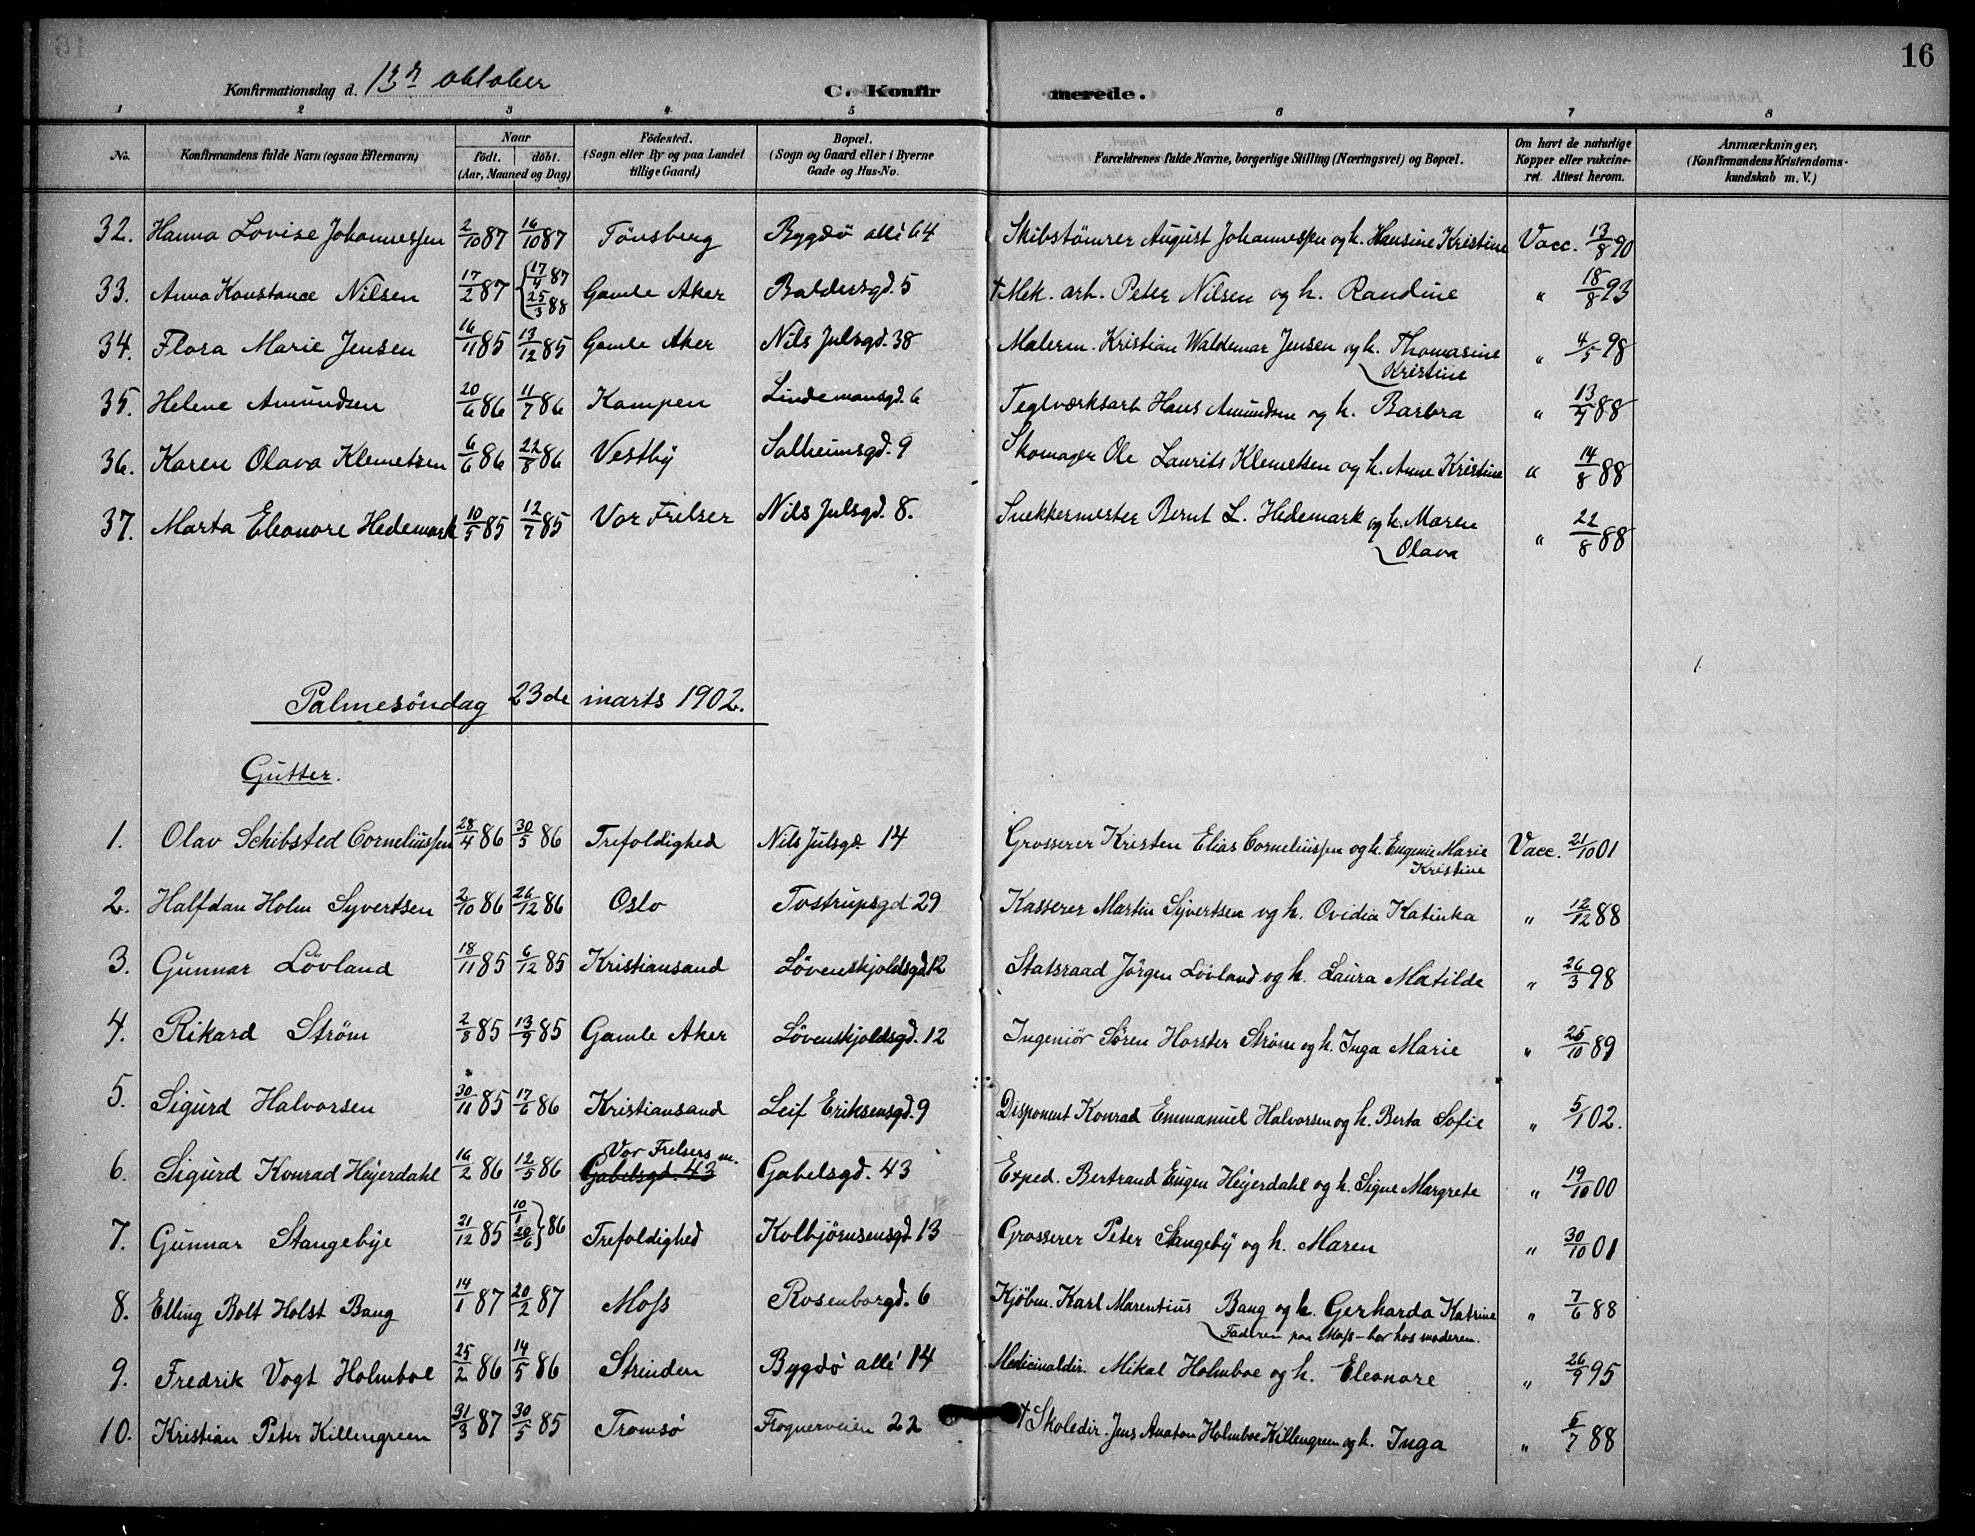 16
Konfirmationsdag d. 13de oktober C. Konfirmerede.
1 2 3 4 5 6 7 8
No. Konfirmandens fulde Navn (ogsaa Efternavn) Naar født. døbt. (Aar, Maaned og Dag) Fødested. (Sogn eller By og paa Landet tillige Gaard) Bopæl. (Sogn og Gaard eller i Byerne Gade og Hus-No. Forældrenes fulde Navne, borgerlige Stilling (Næringsvei) og Bopæl. Om havt de naturlige Kopper eller vakcineret. Attest herom. Anmærkninger. (Konfirmandens Kristendomskundskab m. V.)
32. Hanna Lovise Johannessen 2/10 87 16/10 87 Tönsberg Bygdö allé 64 Skibstömrer August Johannessen og h. Hansine Kristine Vacc. 13/8 90
33. Anna Konstance Nilsen 17/2 87 {17/4 87 25/3 88 Gamle Aker Baldersgd. 5 † Mek. arb. Peter Nilsen og h. Randine " 18/8 93
34. Flora Marie Jensen 16/11 85 13/12 85 Gamle Aker Nils Julsgd. 38 Malerm. Kristian Waldemar Jensen og h. Thomasine " 4/5 98
Kristine
35. Helene Amundsen 20/6 86 11/7 86 Kampen Lindemansgd. 6 Teglværksarb Hans Amundsen og h. Barbra " 13/9 88
36. Karen Olava Klemetsen 6/6 86 22/8 86 Vestby Solheimsgd. 9 Skomager Ole Laurits Klemetsen og h. Anne Kristine " 14/8 88
37. Marta Eleonore Hedemark 10/5 85 12/7 85 Vor Frelser Nils Julsgd. 8. Snekkermester Bernt L. Hedemark og h. Maren " 22/8 88
Olava
Palmesöndag 23de marts 1902.
Gutter.
1. Olav Schibsted Corneliussen 28/4 86 30/5 86 Trefoldighed Nils Julsgd. 14 Grosserer Kristen Elias Corneliussen og h. Eugenie Marie Vacc. 21/10 01
Kristine
2. Halfdan Holm Syvertsen 2/10 86 26/12 86 Oslo Tostrupsgd 29 Kasserer Martin Syvertsen og h. Ovidia Katinka " 12/12 88
3. Gunnar Lövland 18/11 85 6/12 85 Kristiansand Løvenskjoldsgd. 12 Statsraad Jörgen Lövland og h. Laura Matilde " 26/3 98
4. Rikard Strøm 2/8 85 13/9 85 Gamle Aker Løvenskjoldsgd. 12 Ingeniör Søren Horster Strøm og h. Inga Marie " 25/10 89
5. Sigurd Halvorsen 30/11 85 17/6 86 Kristiansand Leif Eriksensgd. 9 Disponent Konrad Emmanuel Halvorsen og h. Berta Sofie " 5/1 02.
Vor Frelsers m.
6. Sigurd Konrad Heyerdahl 16/2 86 12/5 86 Gabelsgd. 43 Gabelsgd. 43 Exped. Bertrand Eugen Heyerdahl og h. Signe Margrete " 19/10 00
7. Gunnar Stangebye 21/12 85 10/1 20/6} 86 Trefoldighed Kolbjørnsensgd. 13 Grosserer Peter Stangeby og h. Maren " 30/10 01
8. Elling Bolt Holst Bang 14/1 87 20/2 87 Moss Rosenborgd. 6 Kjøbm. Karl Marentius Bang og h. Gerharda Katrine " 7/6 88
Faderen paa Moss – bor hos moderen.
9. Fredrik Vogt Holmboe 25/2 86 14/5 86 Strinden Bygdö allé 14 Medicinaldir. Mikal Holmboe og h. Eleonore " 26/9 95
10. Kristian Peter Killengreen 31/3 87 30/5 85 Tromsö Frognerveien 22 † Skoledir. Jens Holmboe Killengreen og h. Inga " 6/7 88